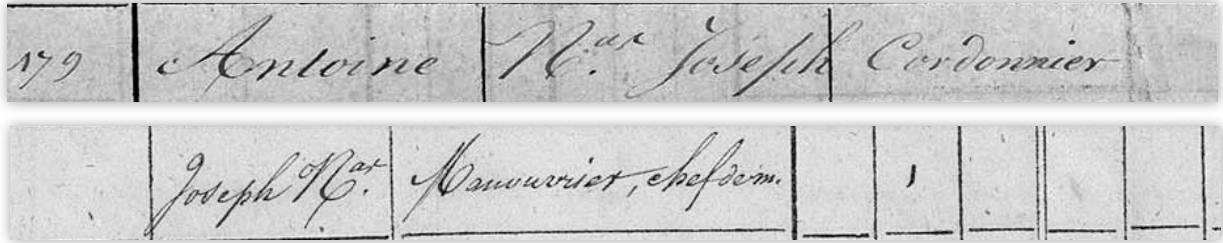 179 Antoine N.as Joseph Cordonnier
Joseph N.as Manouvrier, chef de m. 1